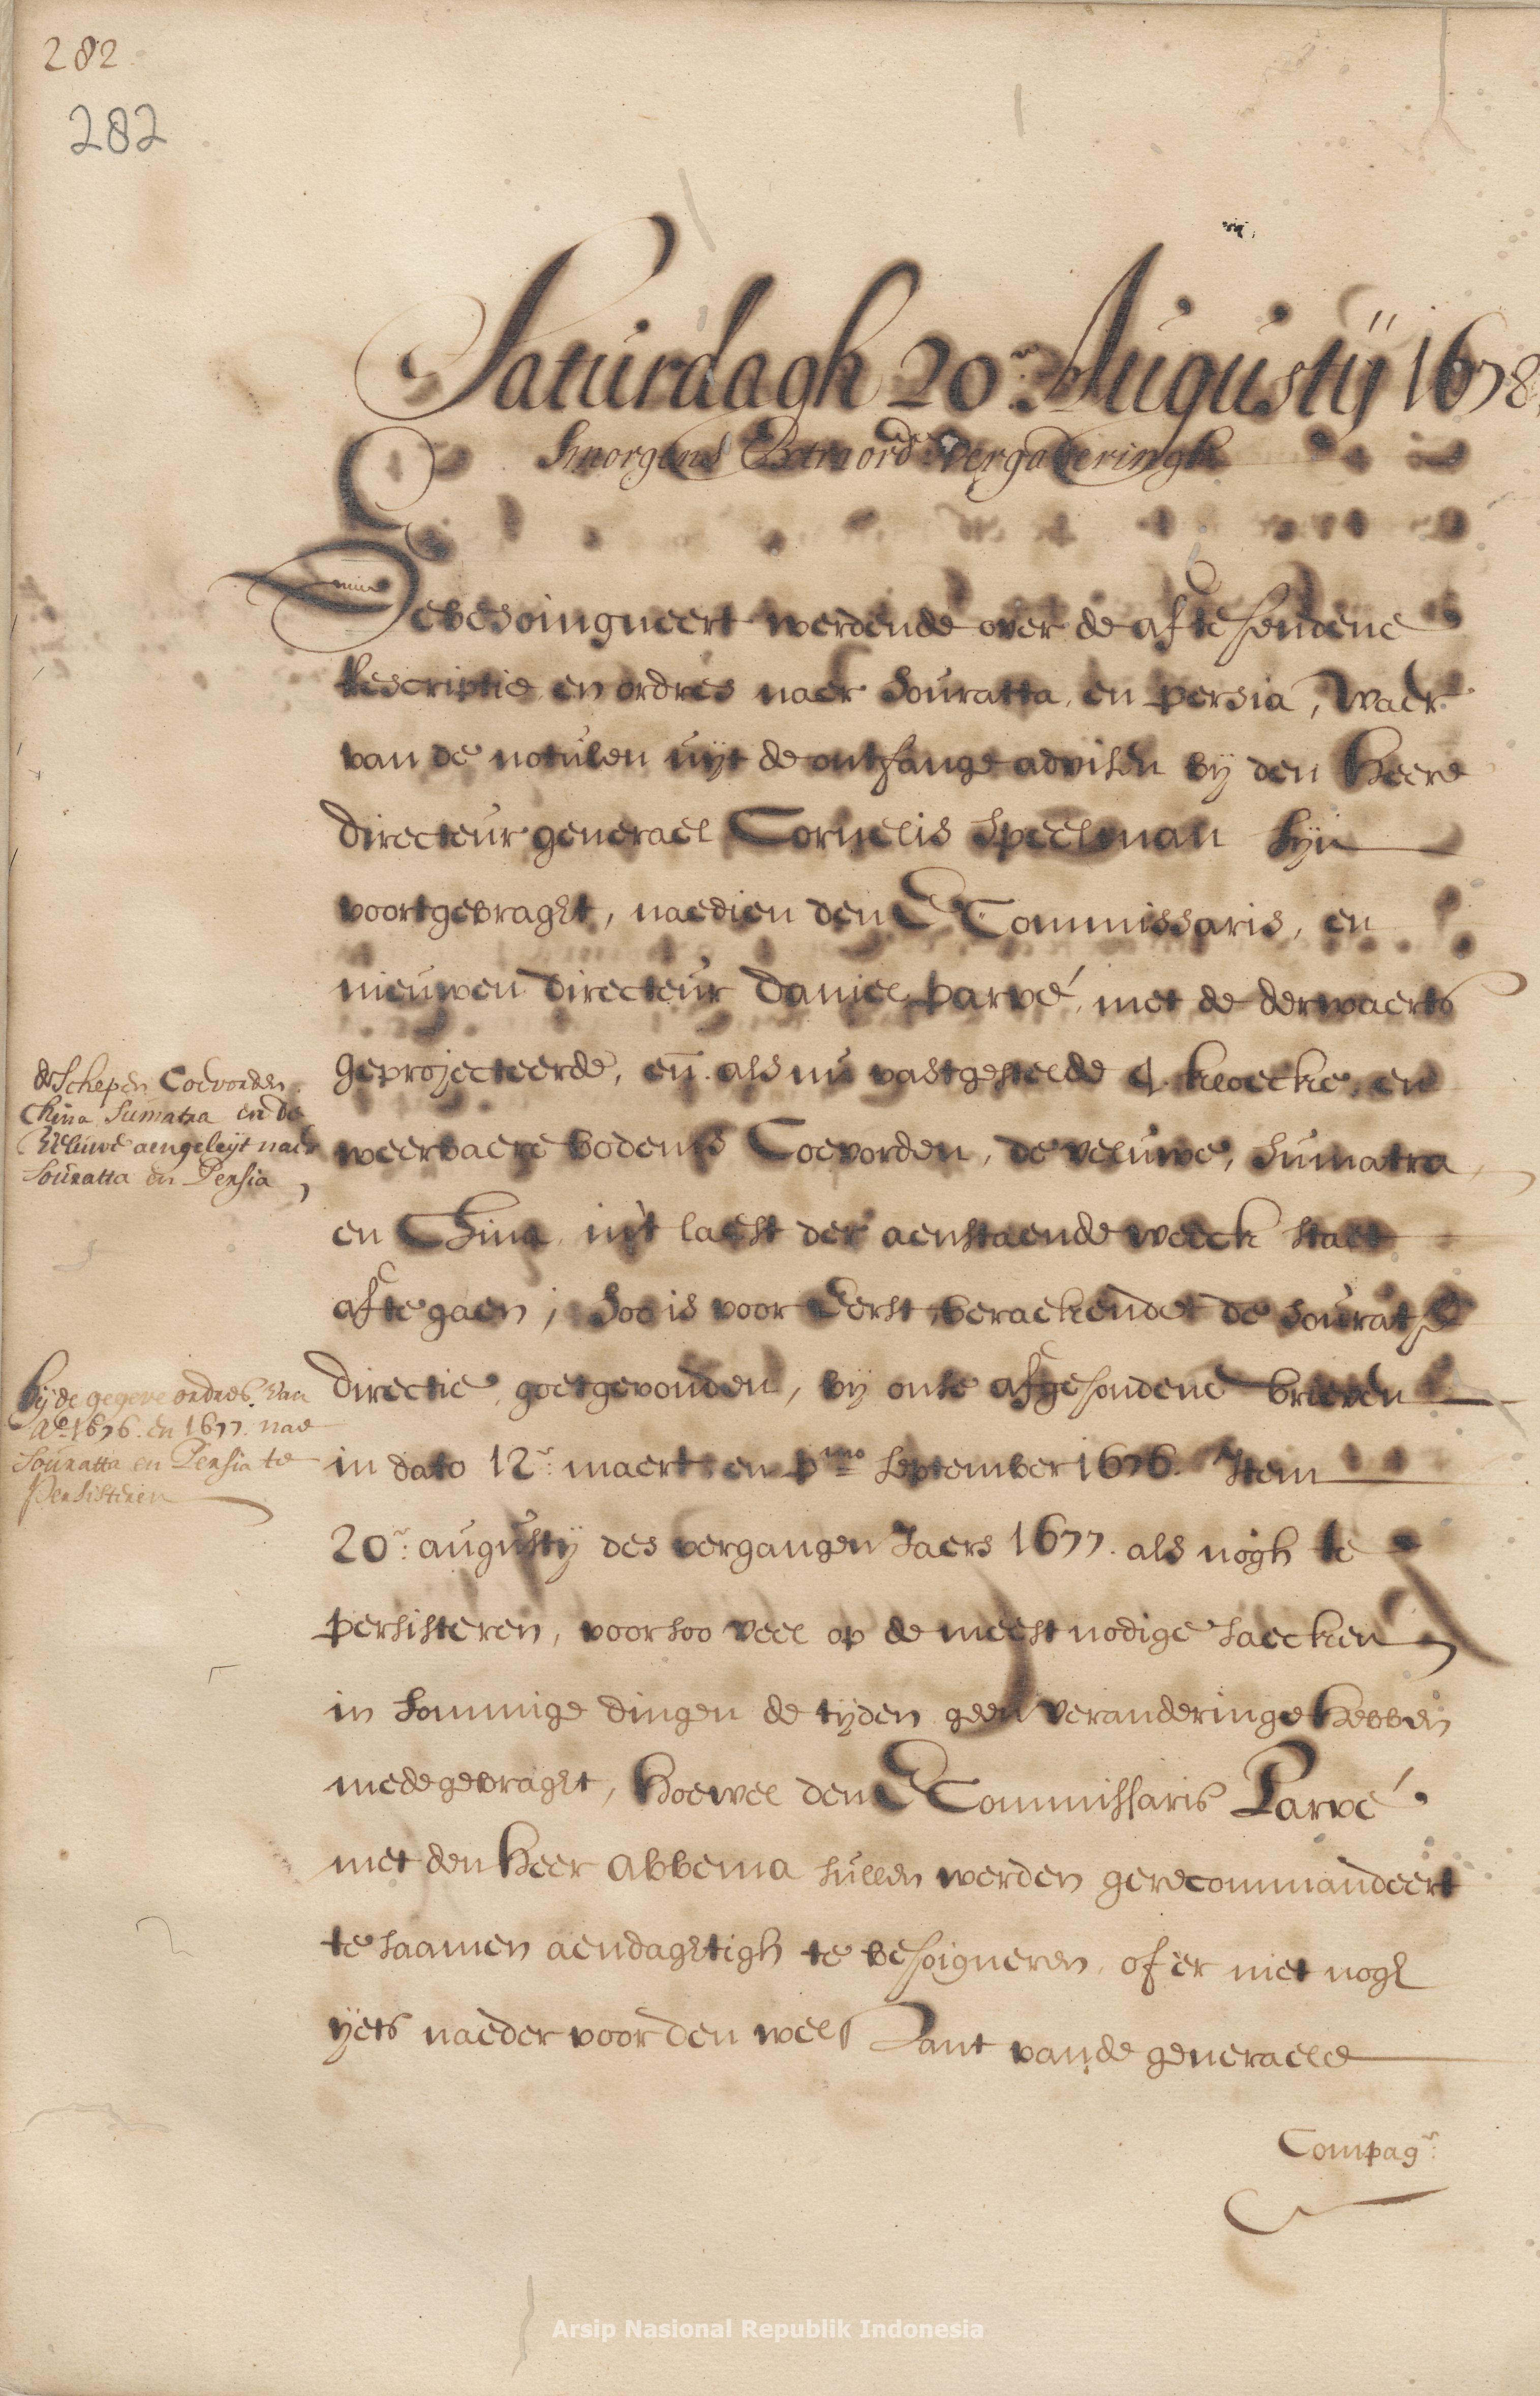 282
282
Saturdagh 20:en Augustij 1678
Smorgens Extraord:e Vergaderingh
Gebesoingneert werdende over de af te sendene
rescriptie en ordres naer Souratta, en persia, waer
van de notulen uijt de ontfange advisen bij den Heere
directeur generael Cornelis Speelman sijn
voortgebraght, naedien den E Commissaris, en
nieuwen directeur Daniel parvé, met de derwaerts
geprojecteerde, en als nu vastgestelde 4. kloecke, en
weerbaere bodems Coevorden, de veluwe, Sumatra
en China, in't laest der aenstaende weeck staet
af te gaen; Soo is voor Eerst, beraekende de Souratse
directie, goetgevonden, bij onse afgesondene brieven
in dato 12:r maert en p:mo September 1676. Item
20:r augustij des vergangen Jaers 1677. als nogh te
persisteren, voor soo veel op de meest nodige saecken
in sommige dingen de tijden geen veranderinge hebben
medegebraght, hoewel den E Commissaris Parvé
met den heer abbema sullen werden gerecommandeert
te saamen aendaghtigh te besoigneren, of er niet nogh
ijets naeder voor den welstant van de generaele
Compag:e
de Schepen Coevorden
China Sumatra en de
Veluwe aengeleijt naer
Souratta en Persia
bij de gegeve ordres van
A:o 1676. en 1677. nae
Souratta en Persia te
Persisteren
Arsip Nasional Republik Indonesia